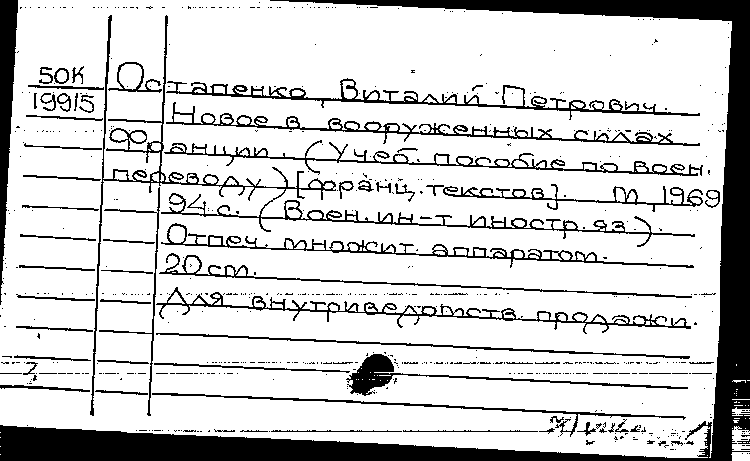 50К Остапенко, Виталий Петрович.
19915 Новое в вооруженных силах
Франции. (Учеб. пособие по воен.
переводу) [франц. текстов]. М, 1969
94 с. (Воен. ин-т иностр. яз.).
Отпеч. множит. аппаратом.
20 см.
Для внутриведомств. продажи.